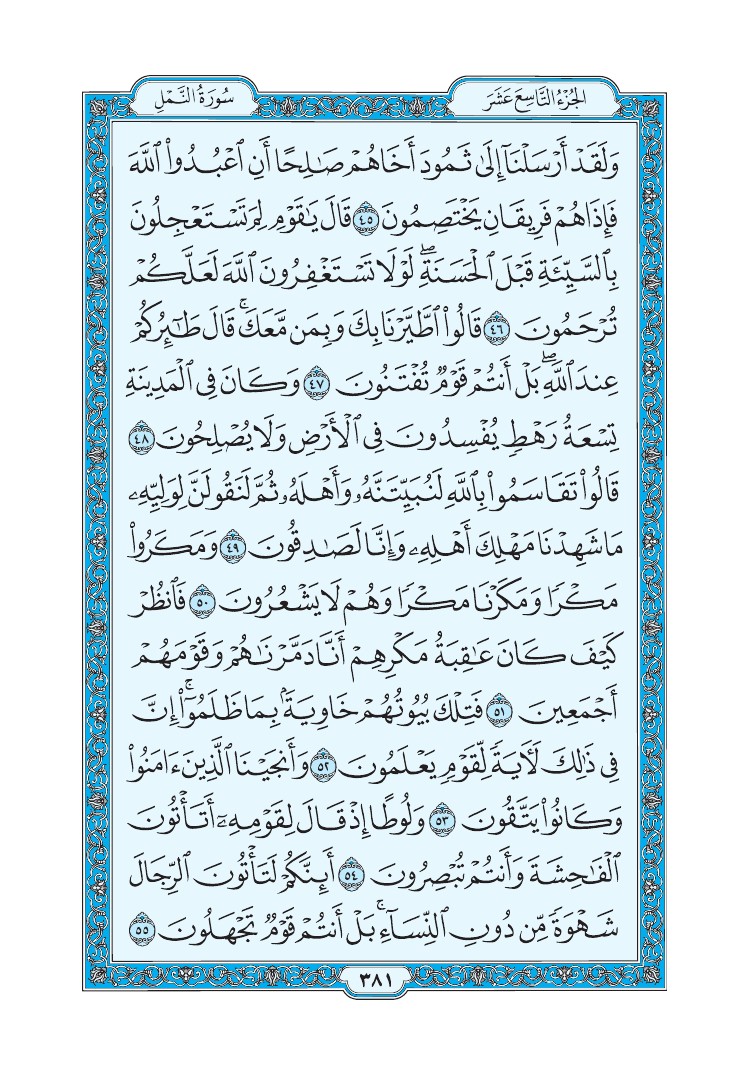 الجُزْءُ التَّاسِعَ عَشَرَ
سُورَةُ النَّمْلِ
وَلَقَدْ أَرْسَلْنَآ إِلَىٰ ثَمُودَ أَخَاهُمْ صَٰلِحًا أَنِ ٱعْبُدُوا۟ ٱللَّهَ
فَإِذَا هُمْ فَرِيقَانِ يَخْتَصِمُونَ ٤٥ قَالَ يَٰقَوْمِ لِمَ تَسْتَعْجِلُونَ
بِٱلسَّيِّئَةِ قَبْلَ ٱلْحَسَنَةِ ۖ لَوْلَا تَسْتَغْفِرُونَ ٱللَّهَ لَعَلَّكُمْ
تُرْحَمُونَ ٤٦ قَالُوا۟ ٱطَّيَّرْنَا بِكَ وَبِمَن مَّعَكَ ۚ قَالَ طَٰٓئِرُكُمْ
عِندَ ٱللَّهِ ۖ بَلْ أَنتُمْ قَوْمٌ تُفْتَنُونَ ٤٧ وَكَانَ فِى ٱلْمَدِينَةِ
تِسْعَةُ رَهْطٍ يُفْسِدُونَ فِى ٱلْأَرْضِ وَلَا يُصْلِحُونَ ٤٨
قَالُوا۟ تَقَاسَمُوا۟ بِٱللَّهِ لَنُبَيِّتَنَّهُۥ وَأَهْلَهُۥ ثُمَّ لَنَقُولَنَّ لِوَلِيِّهِۦ
مَا شَهِدْنَا مَهْلِكَ أَهْلِهِۦ وَإِنَّا لَصَٰدِقُونَ ٤٩ وَمَكَرُوا۟
مَكْرًا وَمَكَرْنَا مَكْرًا وَهُمْ لَا يَشْعُرُونَ ٥٠ فَٱنظُرْ
كَيْفَ كَانَ عَٰقِبَةُ مَكْرِهِمْ أَنَّا دَمَّرْنَٰهُمْ وَقَوْمَهُمْ
أَجْمَعِينَ ٥١ فَتِلْكَ بُيُوتُهُمْ خَاوِيَةًۢ بِمَا ظَلَمُوٓا۟ ۗ إِنَّ
فِى ذَٰلِكَ لَءَايَةً لِّقَوْمٍ يَعْلَمُونَ ٥٢ وَأَنجَيْنَا ٱلَّذِينَ ءَامَنُوا۟
وَكَانُوا۟ يَتَّقُونَ ٥٣ وَلُوطًا إِذْ قَالَ لِقَوْمِهِۦٓ أَتَأْتُونَ
ٱلْفَٰحِشَةَ وَأَنتُمْ تُبْصِرُونَ ٥٤ أَئِنَّكُمْ لَتَأْتُونَ ٱلرِّجَالَ
شَهْوَةً مِّن دُونِ ٱلنِّسَآءِ ۚ بَلْ أَنتُمْ قَوْمٌ تَجْهَلُونَ ٥٥
٣٨١